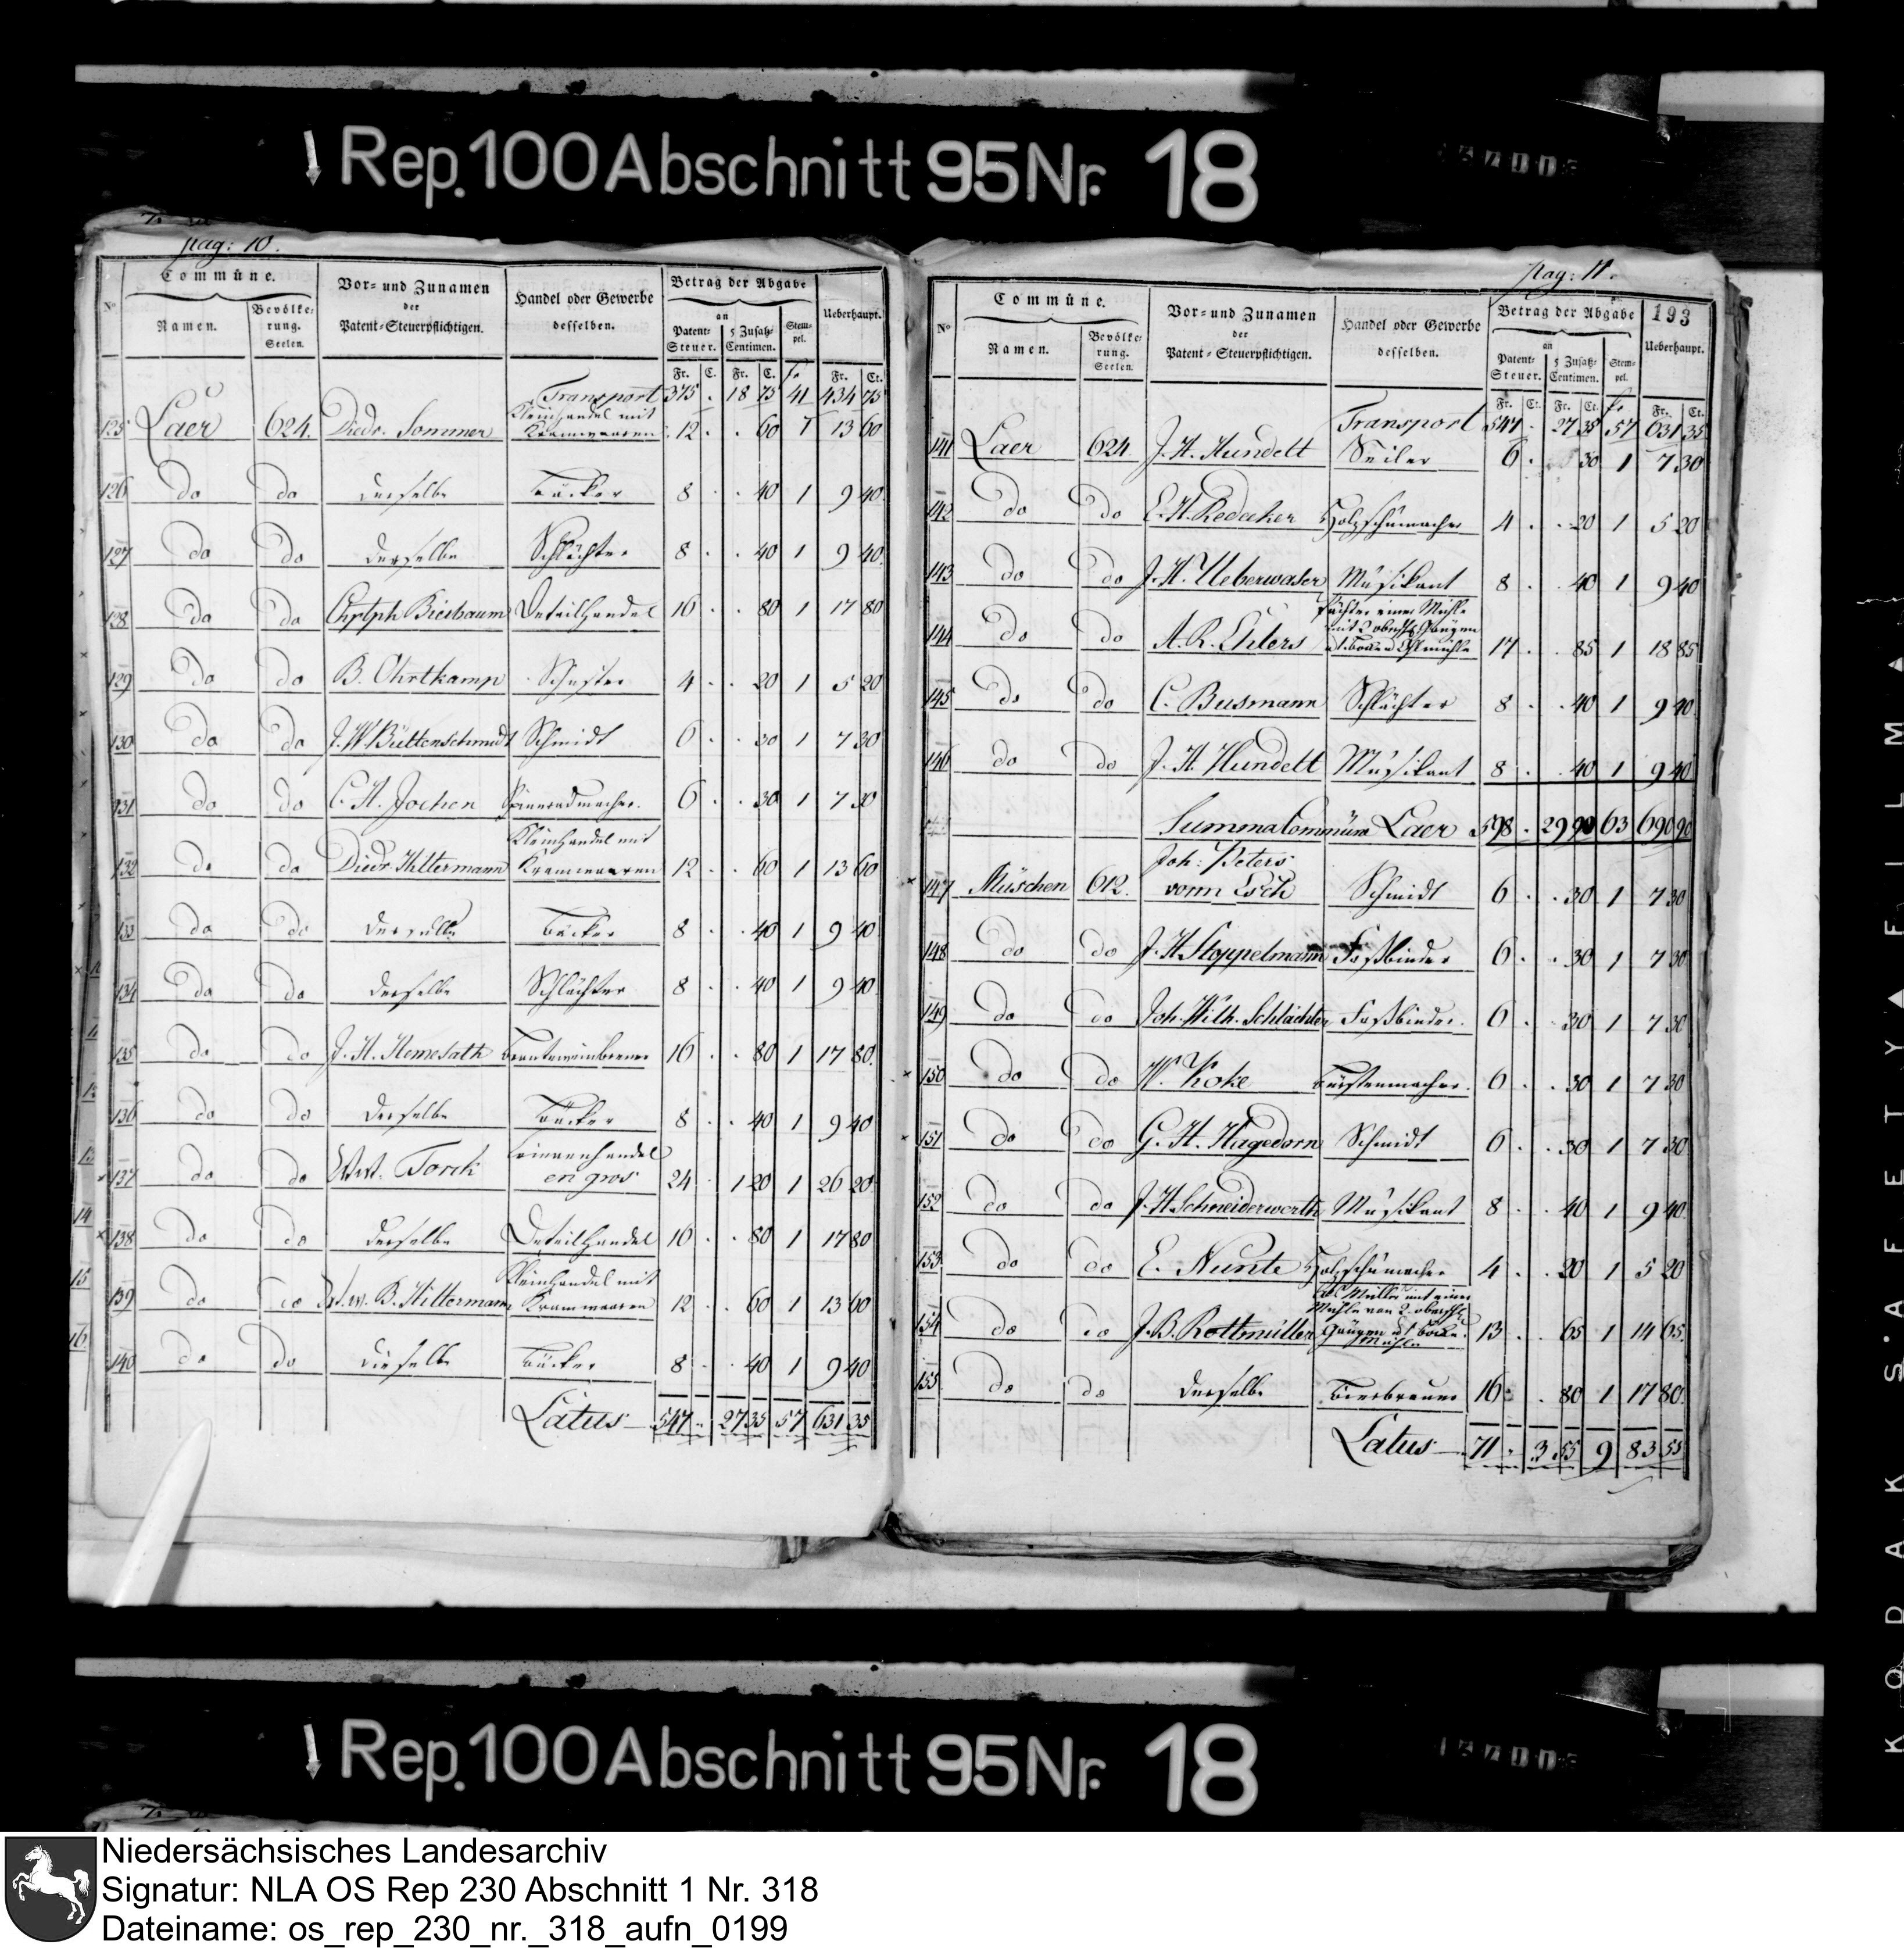 Rep. 100 Abschnitt 95 Nr. 18
pag: 10.
Commüne. Vor- und Zunamen der Patent-Steuerpflichtigen. Handel oder Gewerbe desselben. Betrag der Abgabe Ueberhaupt.
No Namen. Bevölkerung. Seelen. an Patent-Steuer. 5 Zusatz-Centimen. Stempel.
Fr. C. Fr. C. fr. Fr. Ct.
Transport 375 . 18 75 41 434 75
125 Laer 624. Diedr. Sommer Kleinhandel mit Kramwaaren 12 . . 60 1 13 60
126 do do derselbe Bäcker 8 . . 40 1 9 40
127 do do derselbe Schlächter 8 . . 40 1 9 40
128 do do Chrstph Bierbaum Detailhandel 16 . . 80 1 17 80
129 do do B. Ohrtkamp Schuster 4 . . 20 1 5 20
130 do do J. W. Büttenschmidt Schmidt 6 . . 30 1 7 30
131 do do C. H. Jochen Spinnradmacher. 6 . . 30 1 7 30
132 do do Diedr Hiltermann Kleinhandel mit Kramwaaren 12 . . 60 1 13 60
133 do do derselbe Bäcker 8 . . 40 1 9 40
134 do do derselbe Schlächter 8 . . 40 1 9 40
135 do do J. H. Hemesath Branteweinbrenner 16 . . 80 1 17 80
136 do do derselbe Bäcker 8 . . 40 1 9 40
137 do do Torck Leinenhandel en gros 24 . 1 20 1 26 20
138 do do derselbe Detailhandel 16 . . 80 1 17 80
139 do do B. Hiltermann Kleinhandel mit Kramwaaren 12 . . 60 1 13 60
140 do do dieselbe Bäcker 8 . . 40 1 9 40
Latus 547 . 27 35 57 631 35
pag: 11.
193
Commüne. Vor- und Zunamen der Patent-Steuerpflichtigen. Handel oder Gewerbe desselben. Betrag der Abgabe Ueberhaupt.
No Namen. Bevölkerung. Seelen. an Patent-Steuer. 5 Zusatz-Centimen. Stempel.
Fr. Ct. Fr. Ct. fr. Fr. Ct.
Transport 547 . 27 35 57 631 35
141 Laer 624 J. H. Hundelt Seiler 6 . . 30 1 7 30
142 do do E. H. Redecker Holzschumacher 4 . . 20 1 5 20
143 do do J. H. Ueberwaser Musikant 8 . . 40 1 9 40
144 do do A. R. Ehlers Pächter einer Mühle mit 2 oberschl. Gängen 17 . . 85 1 18 85
145 do do C. Busmann Schlächter 8 . . 40 1 9 40
146 do do J. H. Hundelt Musikant 8 . . 40 1 9 40
Summa Commüne Laer 598 . 29 90 63 690 90
147 Müschen 612. Joh: Peters vorm Esch Schmidt 6 . . 30 1 7 30
148 do do J. H. Stoppelmann Faßbinder 6 . . 30 1 7 30
149 do do Joh. Wilh. Schlächter Faßbinder. 6 . . 30 1 7 30
150 do do W. Koke Bürstenmacher. 6 . . 30 1 7 30
151 do do G. H. Hagedorn Schmidt 6 . . 30 1 7 30
152 do do J. H. Schneiderwerth Musikant 8 . . 40 1 9 40
153 do do E. Nunte Holzschumacher 4 . . 20 1 5 20
154 do do J. B. Rottmüller als Müller mit einer Mühle von 2 oberschl. Gängen Mühle 13 . . 65 1 14 65
155 do do derselbe Bierbrauer 16 . . 80 1 17 80
Latus 71 . 3 55 9 83 55
KODAK SAFETY FILM
Rep. 100 Abschnitt 95 Nr. 18
Niedersächsisches Landesarchiv
Signatur: NLA OS Rep 230 Abschnitt 1 Nr. 318
Dateiname: os_rep_230_nr._318_aufn_0199